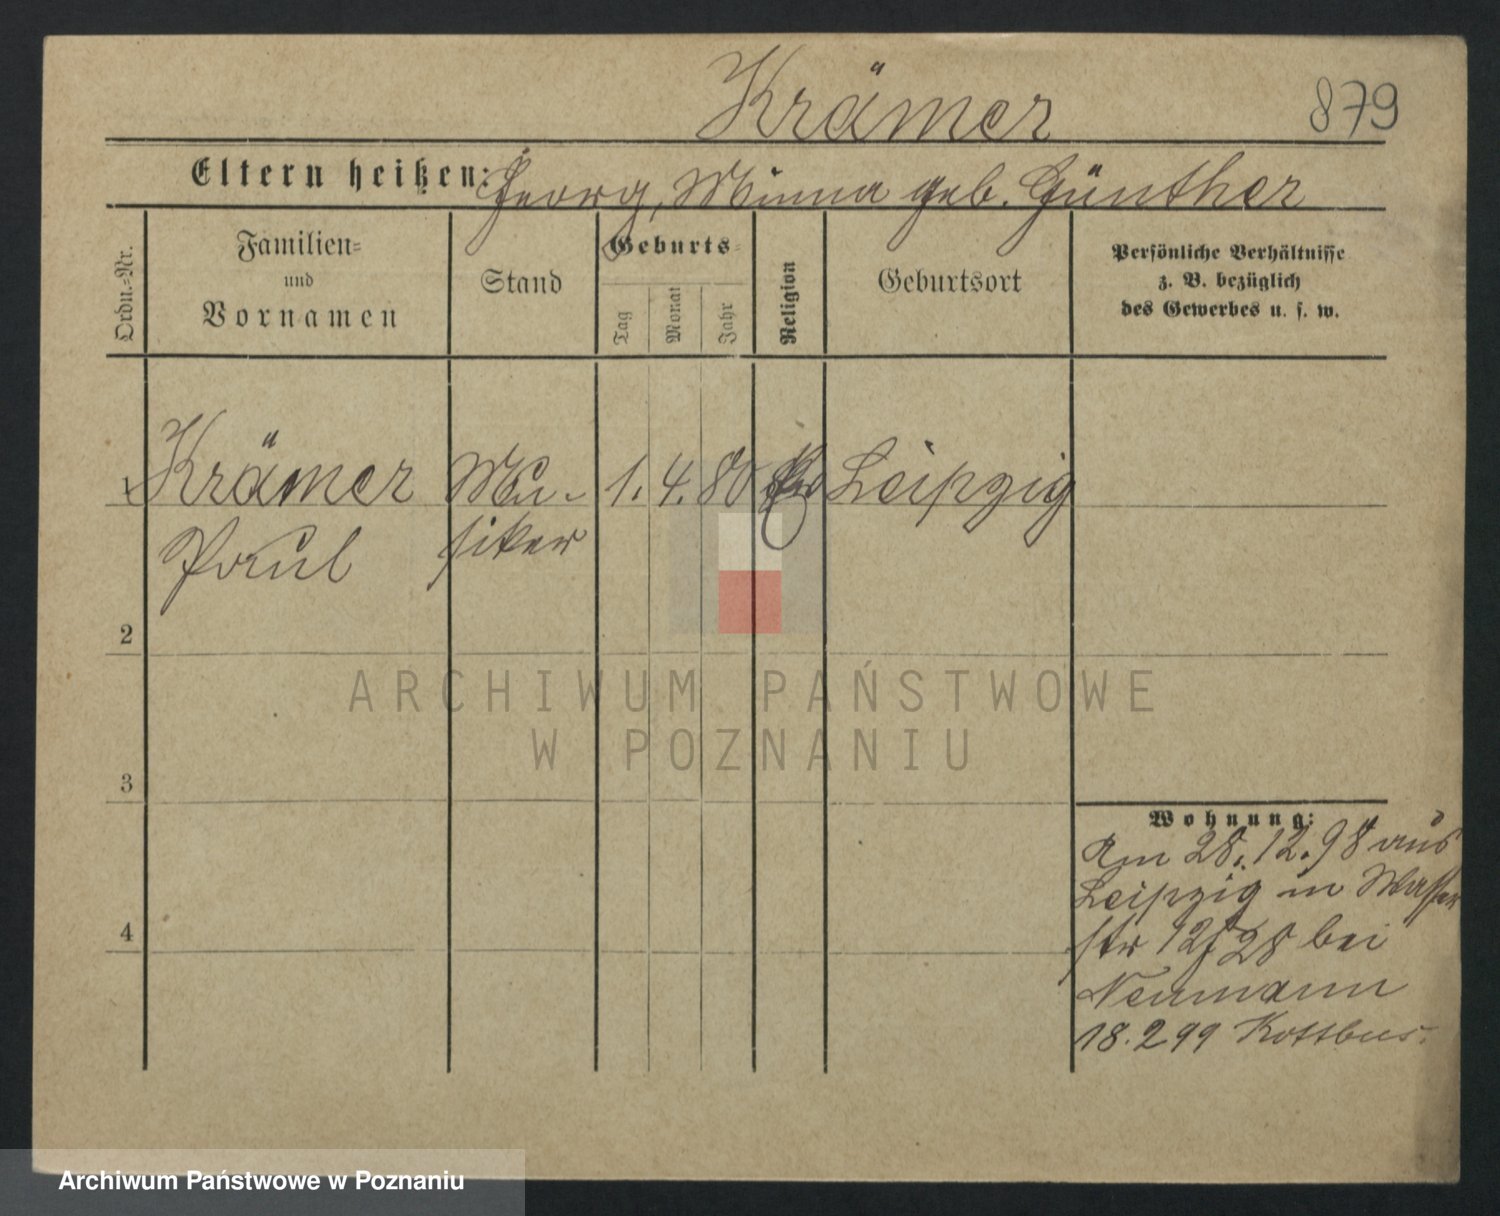 Krämer 879
Eltern heißen: Georg, Minna geb. Günther
Ordn.-Nr.
Familien-
und
Vornamen
Stand
Geburts-
Tag
Monat
Jahr
Religion
Geburtsort
Persönliche Verhältnisse
z. B. bezüglich
des Gewerbes u. s. w.
1 Krämer Mu- 1. 4. 80 Leipzig
Paul siker
2
ARCHIWUM PAŃSTWOWE
W POZNANIU
3
Wohnung:
Am 28.12.98 aus
Leipzig in Wasser
4
str 12/28 bei
Neumann
18.2 99 Kottbus.
Archiwum Państwowe w Poznaniu